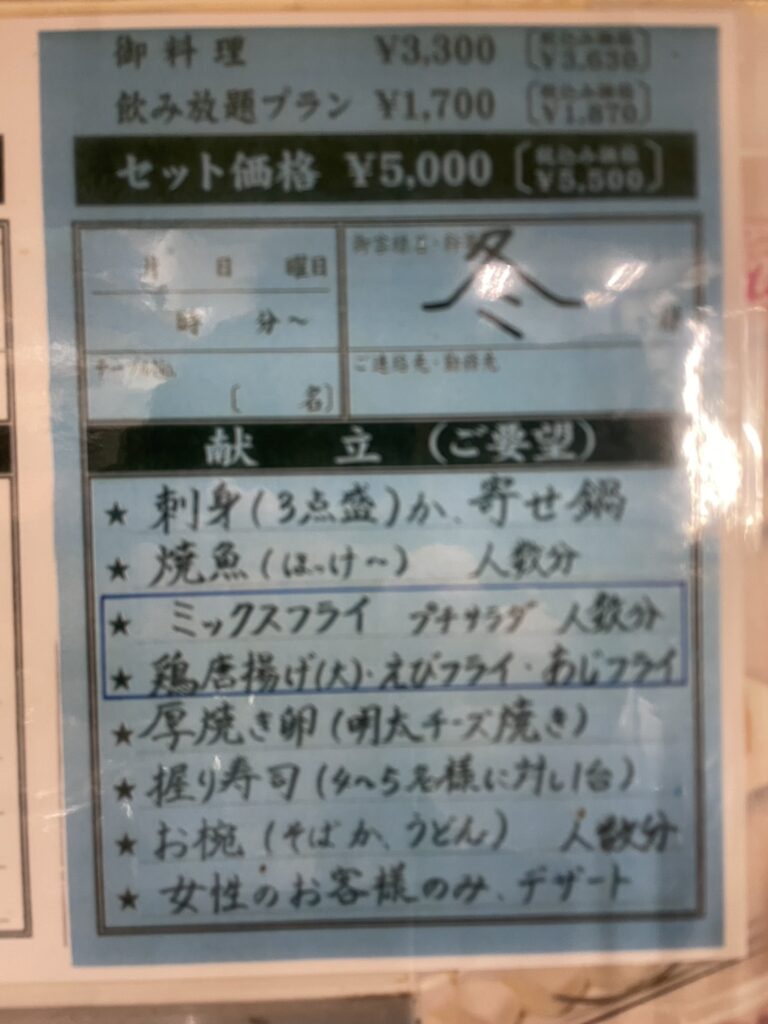 御料理 ¥3,300 〔税込み価格 ¥3,630〕
飲み放題プラン ¥1,700 〔税込み価格 ¥1,870〕
セット価格 ¥5,000 〔税込み価格 ¥5,500〕
月 日 曜日
時 分～
冬
テーブルNo.
〔 名〕
ご連絡先・勤務先
献立 (ご要望)
★ 刺身(3点盛)か、寄せ鍋
★ 焼魚(ほっけ〜) 人数分
★ ミックスフライ プチサラダ 人数分
★ 鶏唐揚げ(大)・えびフライ・あじフライ
★ 厚焼き卵(明太チーズ焼き)
★ 握り寿司(4〜5名様に対し1台)
★ お椀(そばか、うどん) 人数分
★ 女性のお客様のみ、デザート